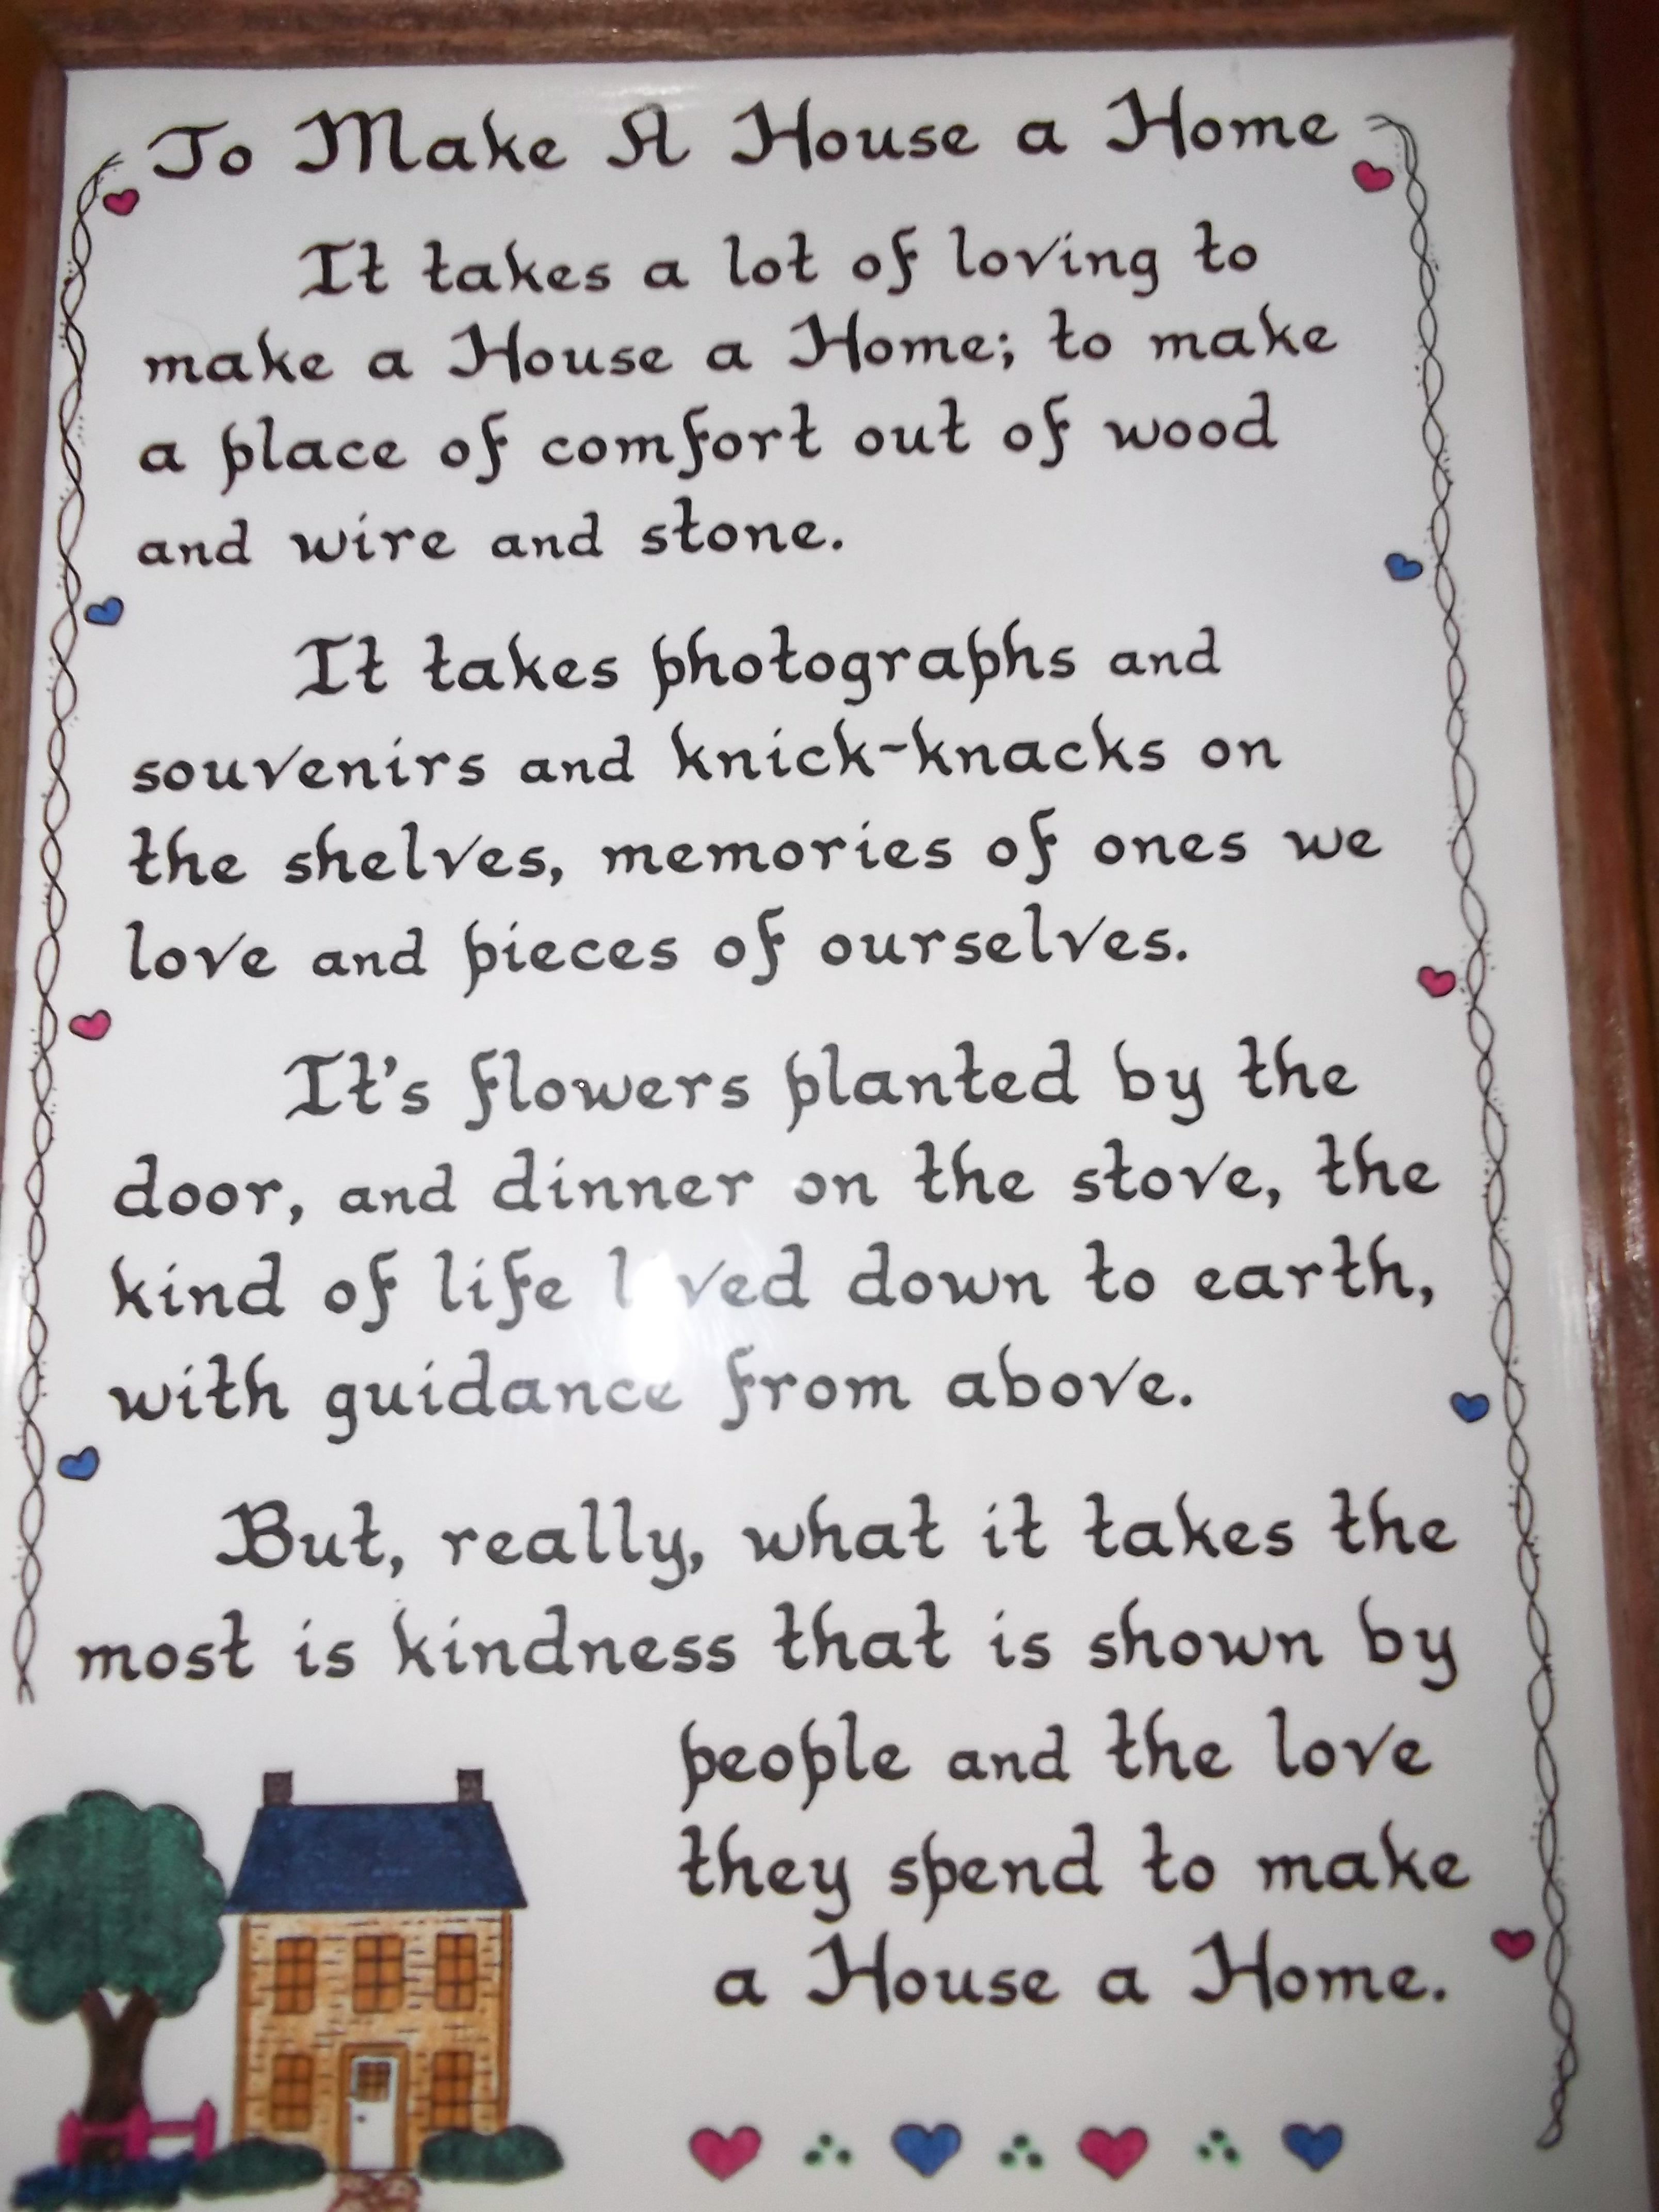 To Make A House a Home
It takes a lot of loving to
make a House a Home; to make
a place of comfort out of wood
and wire and stone.
It takes photographs and
souvenirs and knick-knacks on
the shelves, memories of ones we
love and pieces of ourselves.
It's flowers planted by the
door, and dinner on the stove, the
kind of life down to earth,
with guidance from above.
But, really, what it takes the
most is kindness that is shown by
people and the love
they spend to make
a House a Home.